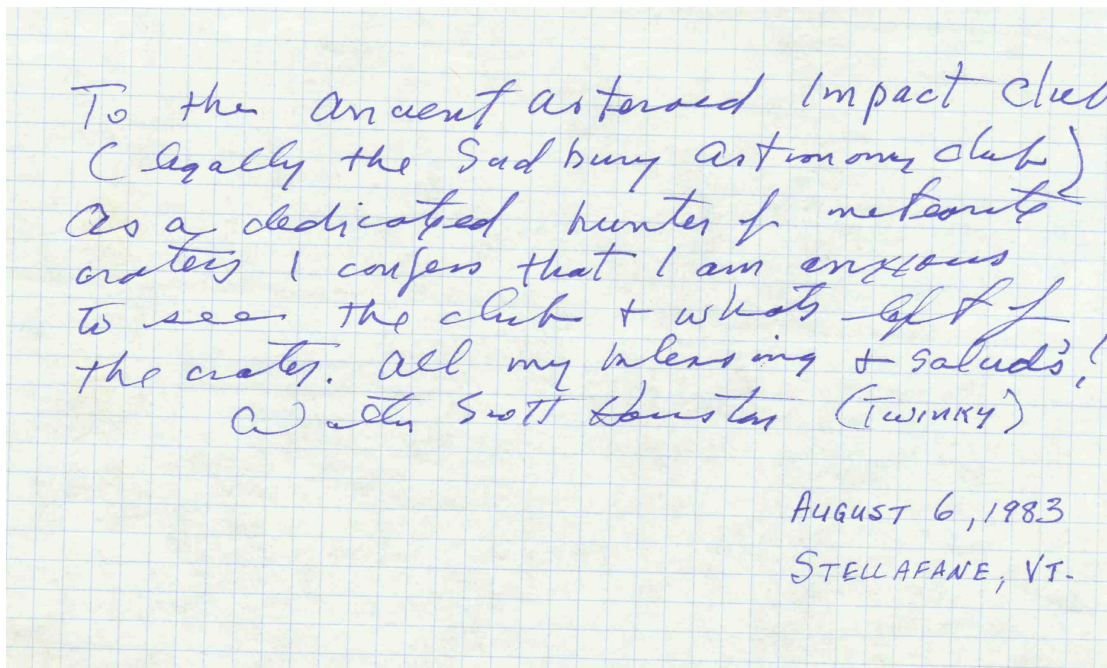 To the Ancient Asteroid Impact Club
(legally the Sudbury Astronomy club)
As a dedicated hunter of meteorite
craters I confess that I am anxious
to see the club + whats left of
the crater. All my blessing + saluds!
Walter Scott Houston (TWINKY)
AUGUST 6, 1983
STELLAFANE, VT.